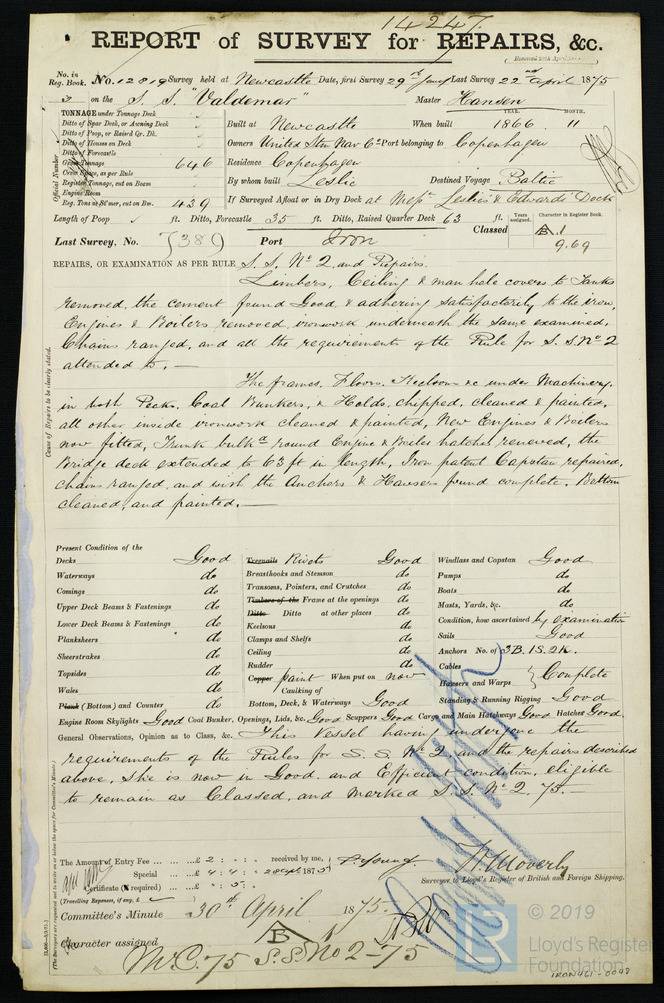 14247
REPORT of SURVEY for REPAIRS, &c.
No. in Reg. Book. No. 12819 Survey held at Newcastle Date, first Survey 29th Last Survey 22nd April 1875
3 on the S. S. "Valdemar" Master Hansen
TONNAGE under Tonnage Deck
Ditto of Spar Deck, or Awning Deck
Ditto of Poop, or Raised Qr. Dk.
Ditto of Houses on Deck
Ditto of Forecastle
Gross Tonnage 646
Crew Space, as per Rule
Register Tonnage, cut on Beam
Engine Room
Reg. Tons as St'mer, cut on Bm. 439
Official Number
YEAR. MONTH.
Built at Newcastle When built 1866 11
Owners United Stm Nav Co Port belonging to Copenhagen
Residence Copenhagen
By whom built Leslie Destined Voyage Baltic
If Surveyed Afloat or in Dry Dock at Messrs Leslie's & Edwards' Dock
Length of Poop ft. Ditto, Forecastle 35 ft. Ditto, Raised Quarter Deck 63 ft.
Years assigned. Character in Register Book.
Classed A.1
9.69
Last Survey, No. 7389 Port Iron
REPAIRS, OR EXAMINATION AS PER RULE S. S. No 2 and Repairs.
Limbers, Ceiling & man hole covers to Tanks
removed, the cement found Good & adhering satisfactorily to the iron,
Engines & Boilers removed, ironwork underneath the same examined,
Chains ranged, and all the requirements of the Rule for S. S. No 2
attended to.—
The frames, Floors, Keelsons &c under Machinery,
in both Peaks, Coal Bunkers, & Holds, chipped, cleaned & painted,
all other inside ironwork cleaned & painted, New Engines & Boilers
now fitted, Trunk bulkd round Engine & Boiler hatches renewed, the
Bridge deck extended to 63 ft in length, Iron patent Capstan repaired,
chains ranged, and with the Anchors & Hawsers found complete. Bottom
cleaned, and painted.—
Cause of Repairs to be clearly stated.
Present Condition of the
Decks Good
Waterways do
Comings do
Upper Deck Beams & Fastenings do
Lower Deck Beams & Fastenings do
Planksheers do
Sheerstrakes do
Topsides do
Wales do
Plank (Bottom) and Counter do
Treenails Rivets Good
Breasthooks and Stemson do
Transoms, Pointers, and Crutches do
Timbers of the Frame at the openings do
Ditto Ditto at other places do
Keelsons do
Clamps and Shelfs do
Ceiling do
Rudder do
Copper paint When put on now
Caulking of
Bottom, Deck, & Waterways Good
Windlass and Capstan Good
Pumps do
Boats do
Masts, Yards, &c. do
Condition, how ascertained by examination
Sails Good
Anchors No. of 3B. 1S. 2K.
Cables
Hawsers and Warps Complete
Standing & Running Rigging Good
Engine Room Skylights Good Coal Bunker, Openings, Lids, &c. Good Scuppers Good Cargo and Main Hatchways Good Hatches Good.
General Observations, Opinion as to Class, &c. This Vessel having undergone the
requirements of the Rules for S. S. No 2, and the repairs described
above, she is now in Good, and Efficient condition, eligible
to remain as Classed, and marked S. S. No 2. 75.—
The Amount of Entry Fee ... £ 2 : : received by me,
Special ... £ 4 : 4 : 1875
Certificate (if required) ... 5 :
(Travelling Expenses, if any, £
Surveyor to Lloyd's Register of British and Foreign Shipping.
Committee's Minute 30th April 1875.
Character assigned
M.C. 75 S.S. No 2-75
© 2019
Lloyd's Register
Foundation
IRON461-0098